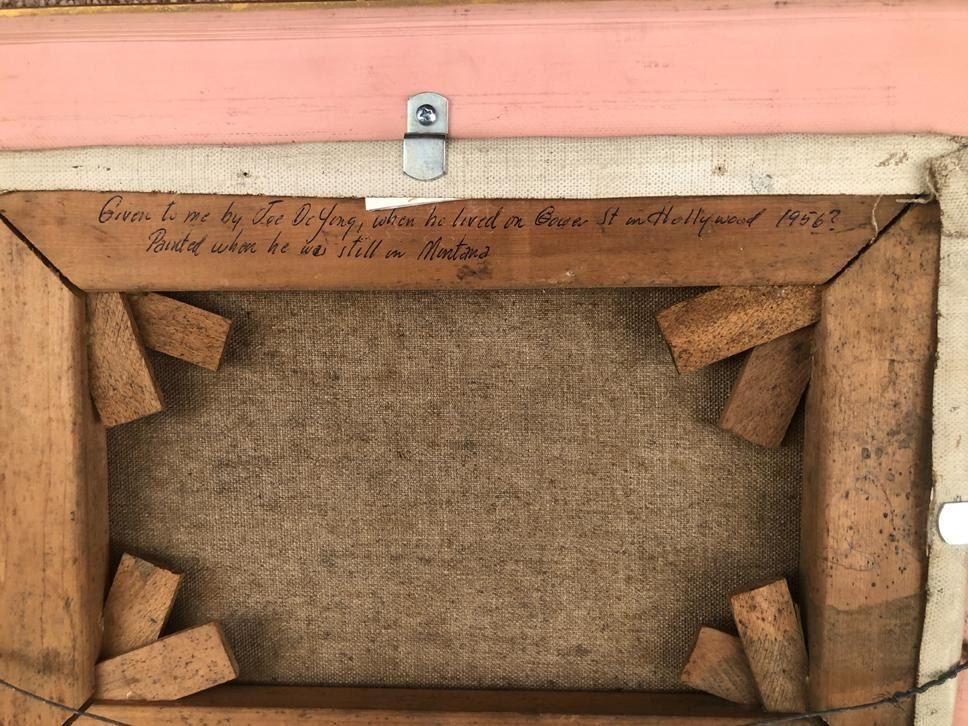 Given to me by Joe De Yong, when he lived on Gower St in Hollywood 1956?
Painted when he was still in Montana